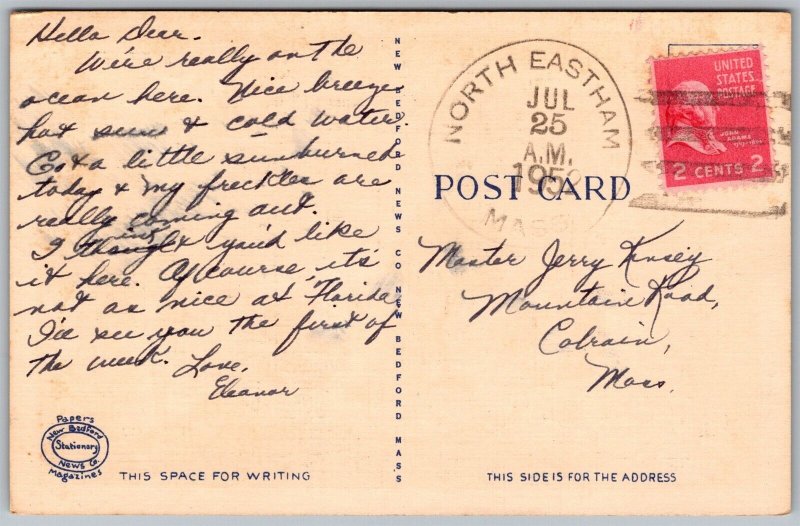 Hello Dear.
We're really on the
ocean here. Nice breeze
hot sun & cold water.
Got a little sunburned
today & my freckles are
really coming out.
I think you'd like
it here. Of course, it's
not as nice as Florida
I'll see you the first of
the week. Love,
Eleanor
Papers
New Bedford
Stationery
News Co.
Magazines
THIS SPACE FOR WRITING
NEW BEDFORD NEWS CO NEW BEDFORD MASS
NORTH EASTHAM
JUL
25
A.M.
MASS
UNITED
STATES
POSTAGE
JOHN
ADAMS
2 CENTS 2
POST CARD
Master Jerry Kensey
Mountain Road,
Colrain,
Mass.
THIS SIDE IS FOR THE ADDRESS